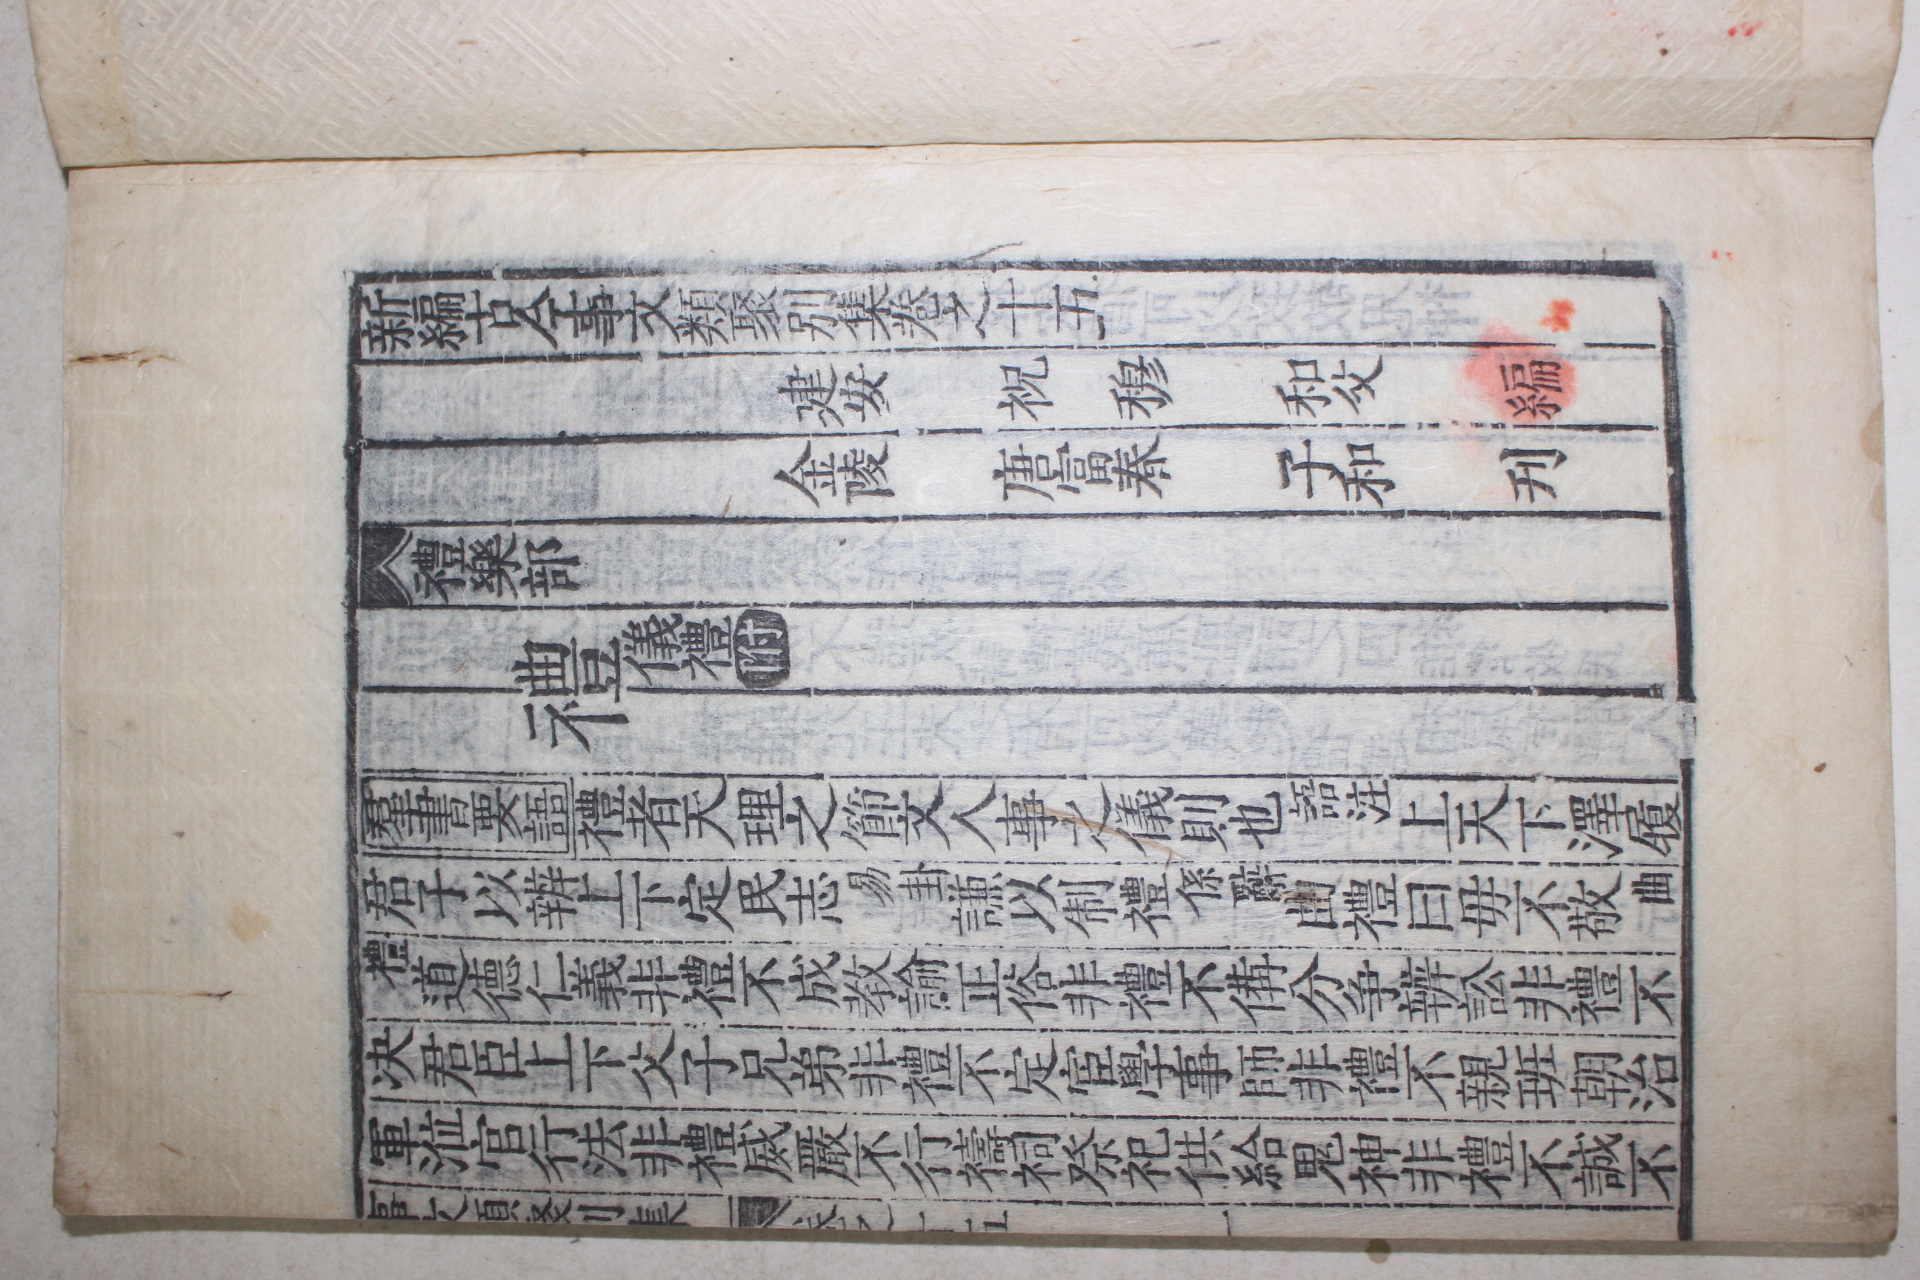 新編古今事文類聚別集卷之十五
建安 祝 穆 和父 編
金陵 唐富春 子和 刋
禮樂部
禮 儀禮附
羣書要語 禮者天理之節文人事之儀則也 語注 上天下澤履
君子以辨上下定民志 易卦 謙以制禮 係辭 曲禮曰毋不敬 曲
禮 道德仁義非禮不成教諭正俗非禮不備分争辨訟非禮不
决君臣上下父子兄弟非禮不定宦學事師非禮不親班朝治
軍涖官行法非禮威嚴不行禱祠祭祀供給鬼神非禮不誠不
事文類聚別集 卷之十五 一